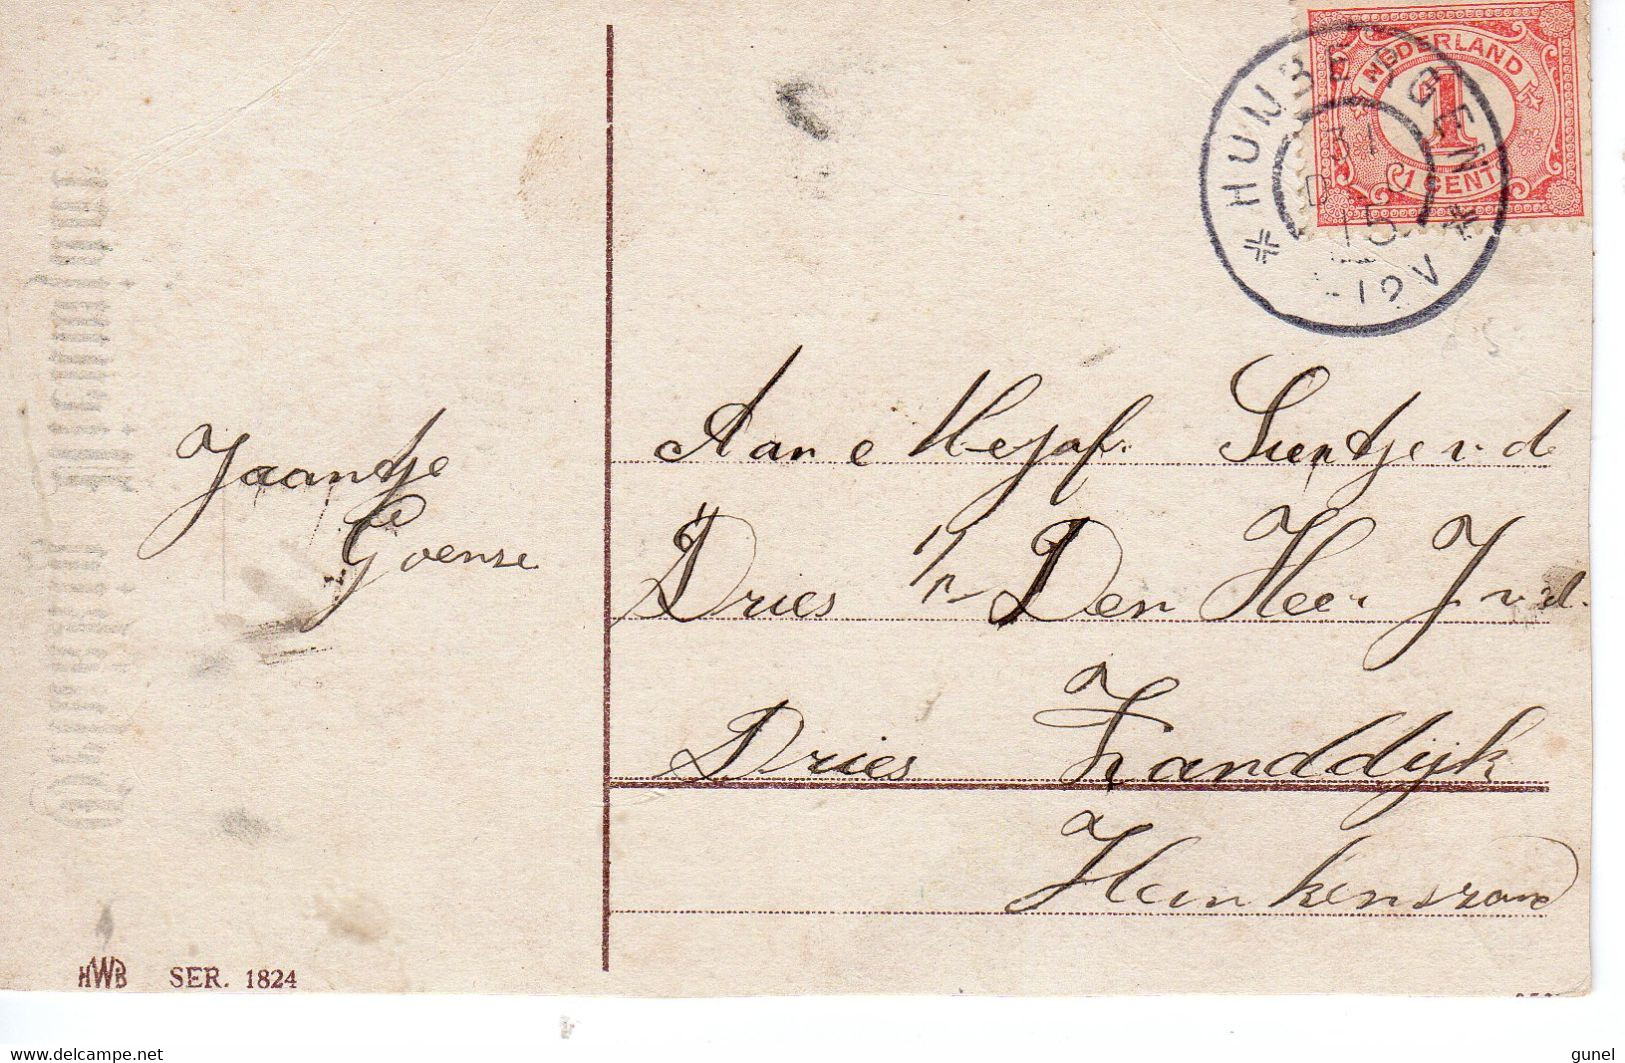 NEDERLAND
1
1 CENT
HUNSELGEN
31
15
-12V
Jaantje
Goense
Aan e Mejof. Sientje v. d
Dries p/a Den Heer J. v. d.
Dries Zanddijk
Heinkenszand
HWB SER. 1824
www.delcampe.net
gunel